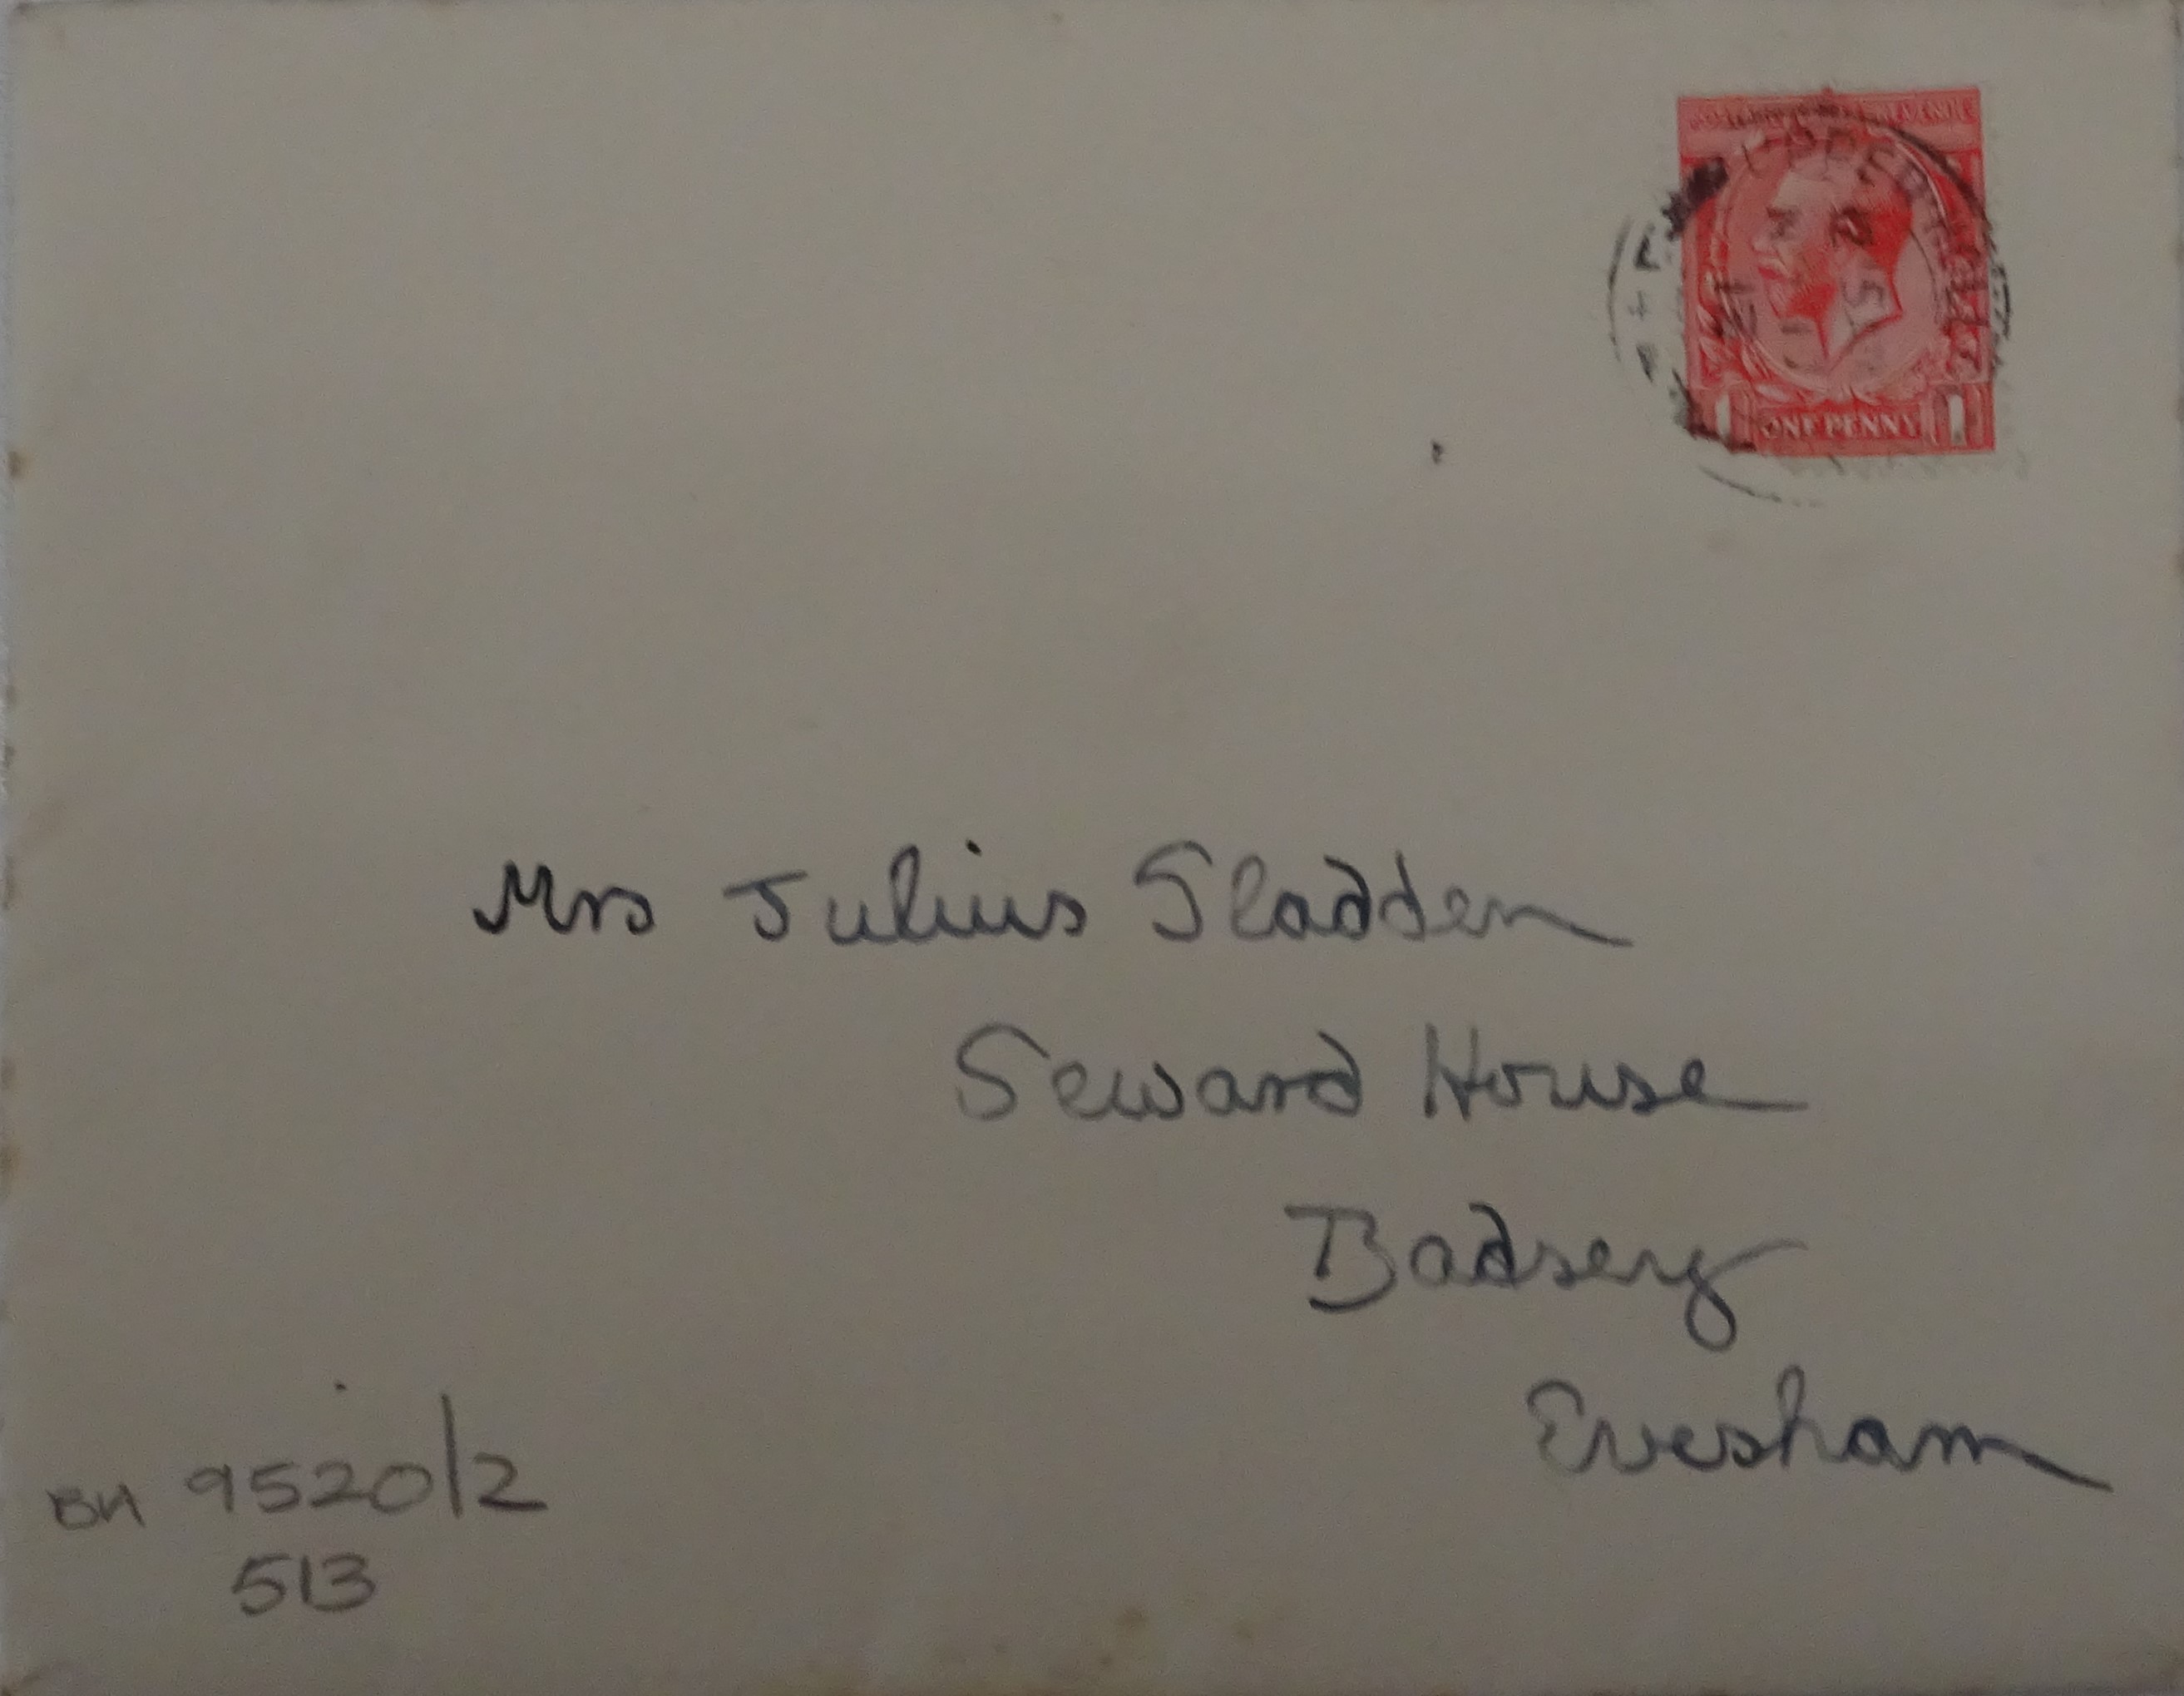 ONE PENNY
Mrs Julius Sladden
Seward House
Badsey
Evesham
BH 9520/2
513